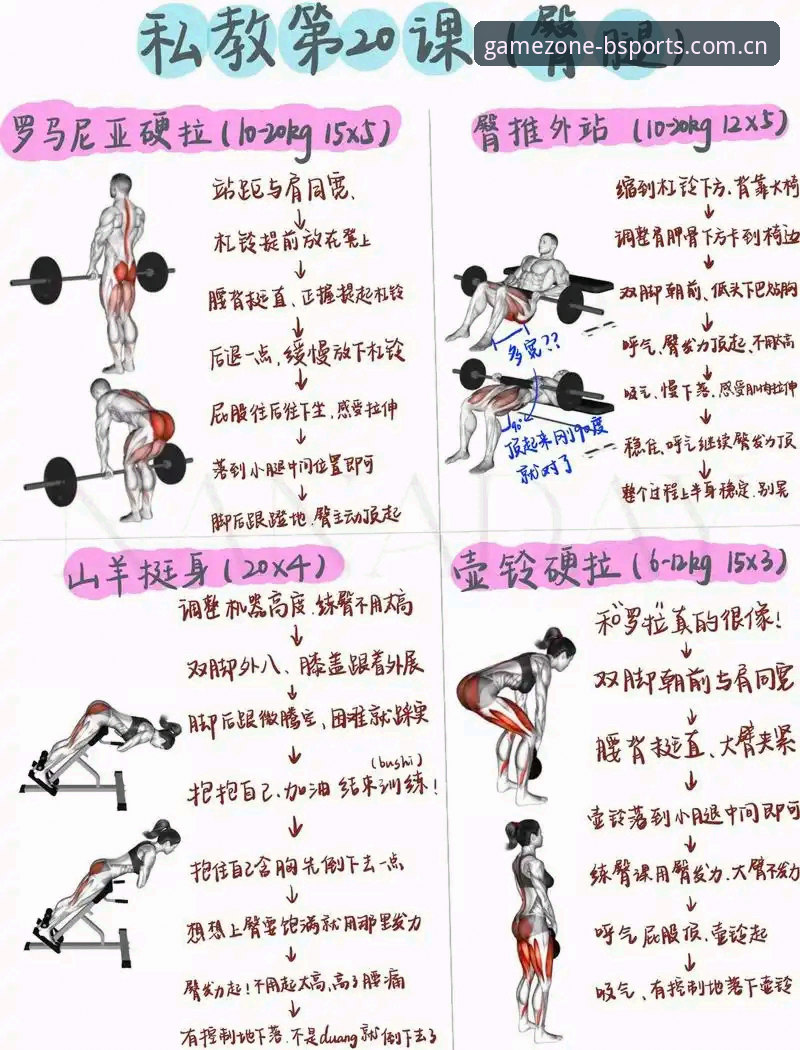 私教第20课(臀腿)
gamezone-bsports.com.cn
罗马尼亚硬拉(10-20kg 15x5)
站距与肩同宽、
↓
杠铃提前放在凳上
↓
腰背挺直、正握提起杠铃
↓
后退一点,缓慢放下杠铃
↓
屁股往后往下坐,感受拉伸
↓
落到小腿中间位置即可
↓
脚后跟蹬地、臀主动顶起
臀推外站(10-20kg 12x5)
缩到杠铃下方,背靠大椅
↓
调整肩胛骨下方卡到椅边
↓
双脚朝前、低头下巴贴胸
↓
呼气、臀发力顶起、不用太高
↓
吸气、慢下落,感受肌肉拉伸
↓
稳住、呼气继续臀发力顶
↓
整个过程上半身稳定,别晃
多宽??
90°
顶起来刚90度
就对了
山羊挺身(20x4)
调整机器高度,练臀不用太高
↓
双脚外八、膝盖跟着外展
↓
脚后跟微腾空、困难就踩实
↓
(bushi)
抱抱自己、加油 结束训练!
↓
抱住自己含胸先倒下去一点
↓
想想上臀要饱满就用那里发力
↓
臀发力起!不用起太高,高了腰痛
↓
有控制地下落、不是duang就倒下去了
壶铃硬拉(6-12kg 15x3)
和"罗拉"真的很像!
↓
双脚朝前与肩同宽
↓
腰背挺直、大臂夹紧
↓
壶铃落到小腿中间即可
↓
练臀课用臀发力、大臂不发力
↓
呼气屁股顶、壶铃起
↓
吸气、有控制地落下壶铃